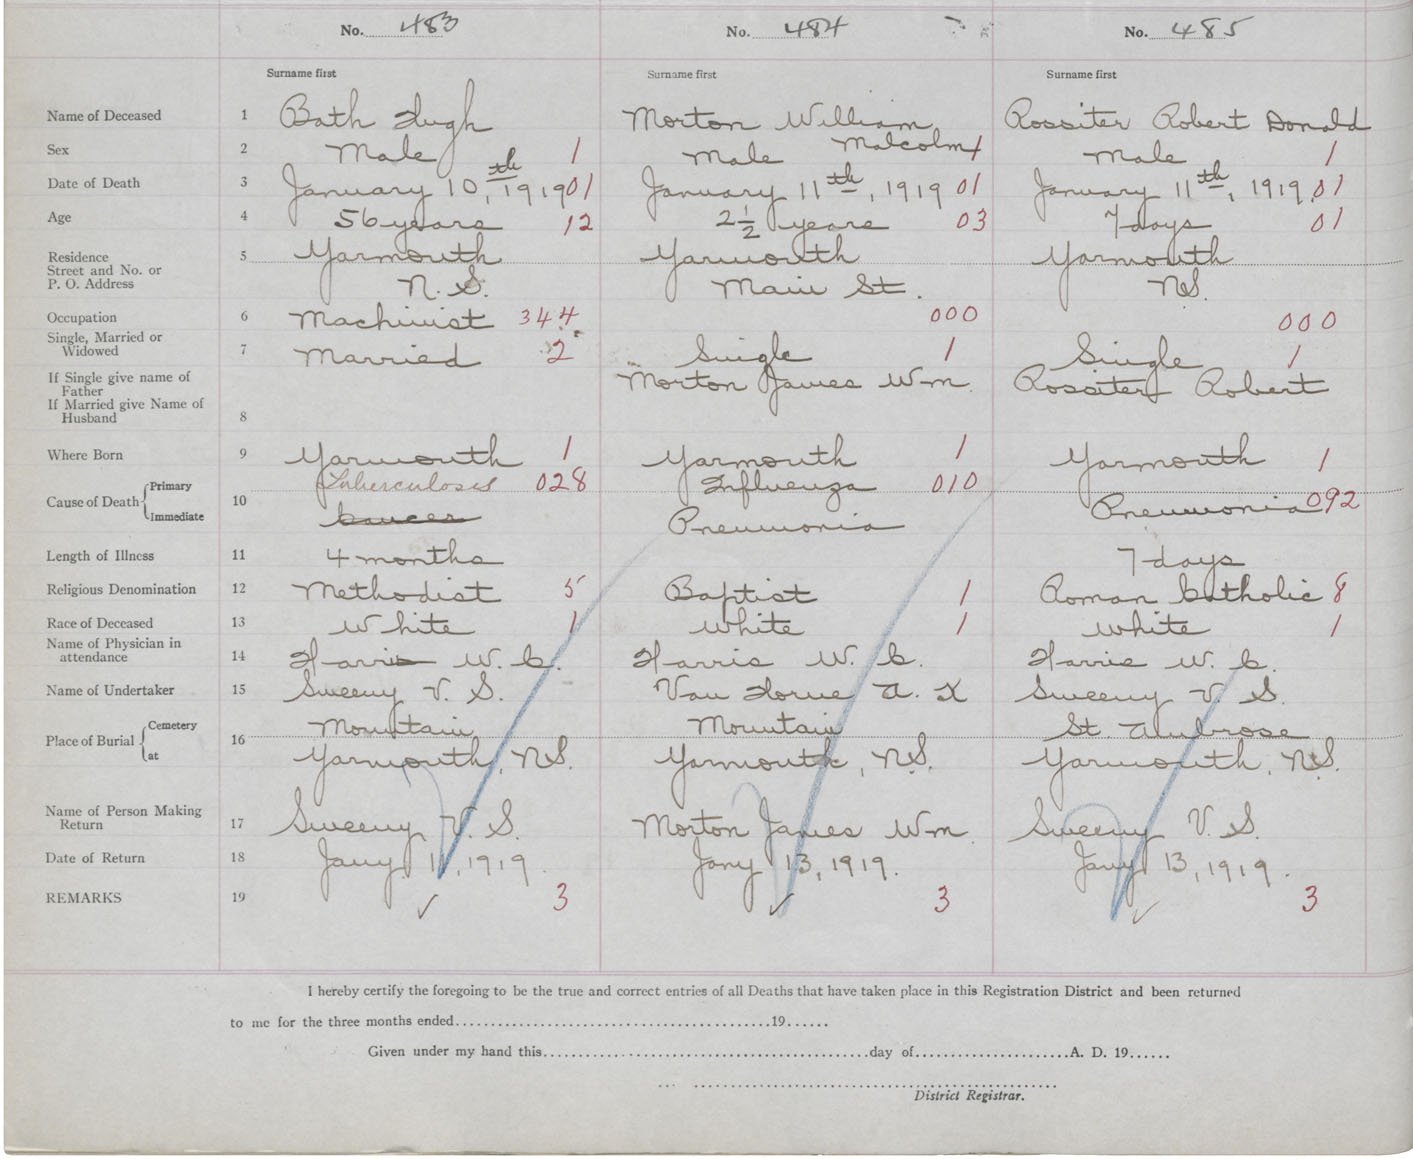 No. 483 No. 484 No. 485
Surname first Surname first Surname first
Name of Deceased 1 Bath Hugh Morton William Rossiter Robert Donald
Sex 2 Male 1 Male Malcolm 1 Male 1
Date of Death 3 January 10th, 1919 01 January 11th, 1919 01 January 11th, 1919 01
Age 4 56 years 12 2 1/2 years 03 7 days 01
Residence 5 Yarmouth Yarmouth Yarmouth
Street and No. or
P. O. Address N. S. Main St. NS.
Occupation 6 Machinist 344 000 000
Single, Married or
Widowed 7 Married 2 Single 1 Single 1
If Single give name of Morton James Wm. Rossiter Robert
Father
If Married give Name of
Husband 8
Where Born 9 Yarmouth 1 Yarmouth 1 Yarmouth 1
Cause of Death Primary 10 Tuberculosis 028 Influenza 010
Immediate Cancer Pneumonia Pneumonia 092
Length of Illness 11 4 months 7 days
Religious Denomination 12 Methodist 5 Baptist 1 Roman Catholic 8
Race of Deceased 13 White 1 White 1 White 1
Name of Physician in
attendance 14 Harris W. C. Harris W. C. Harris W. C.
Name of Undertaker 15 Sweeny V. S. Van Horne A. K Sweeny V. S.
Place of Burial Cemetery 16 Mountain Mountain St. Ambrose
at Yarmouth, NS. Yarmouth, N.S. Yarmouth, N.S.
Name of Person Making
Return 17 Sweeny V. S. Morton James Wm. Sweeny V. S.
Date of Return 18 Jany 11, 1919. Jany 13, 1919. Jany 13, 1919.
REMARKS 19 ✓ 3 ✓ 3 ✓ 3
I hereby certify the foregoing to be the true and correct entries of all Deaths that have taken place in this Registration District and been returned
to me for the three months ended........................................19......
Given under my hand this.........................................day of......................A. D. 19......
District Registrar.